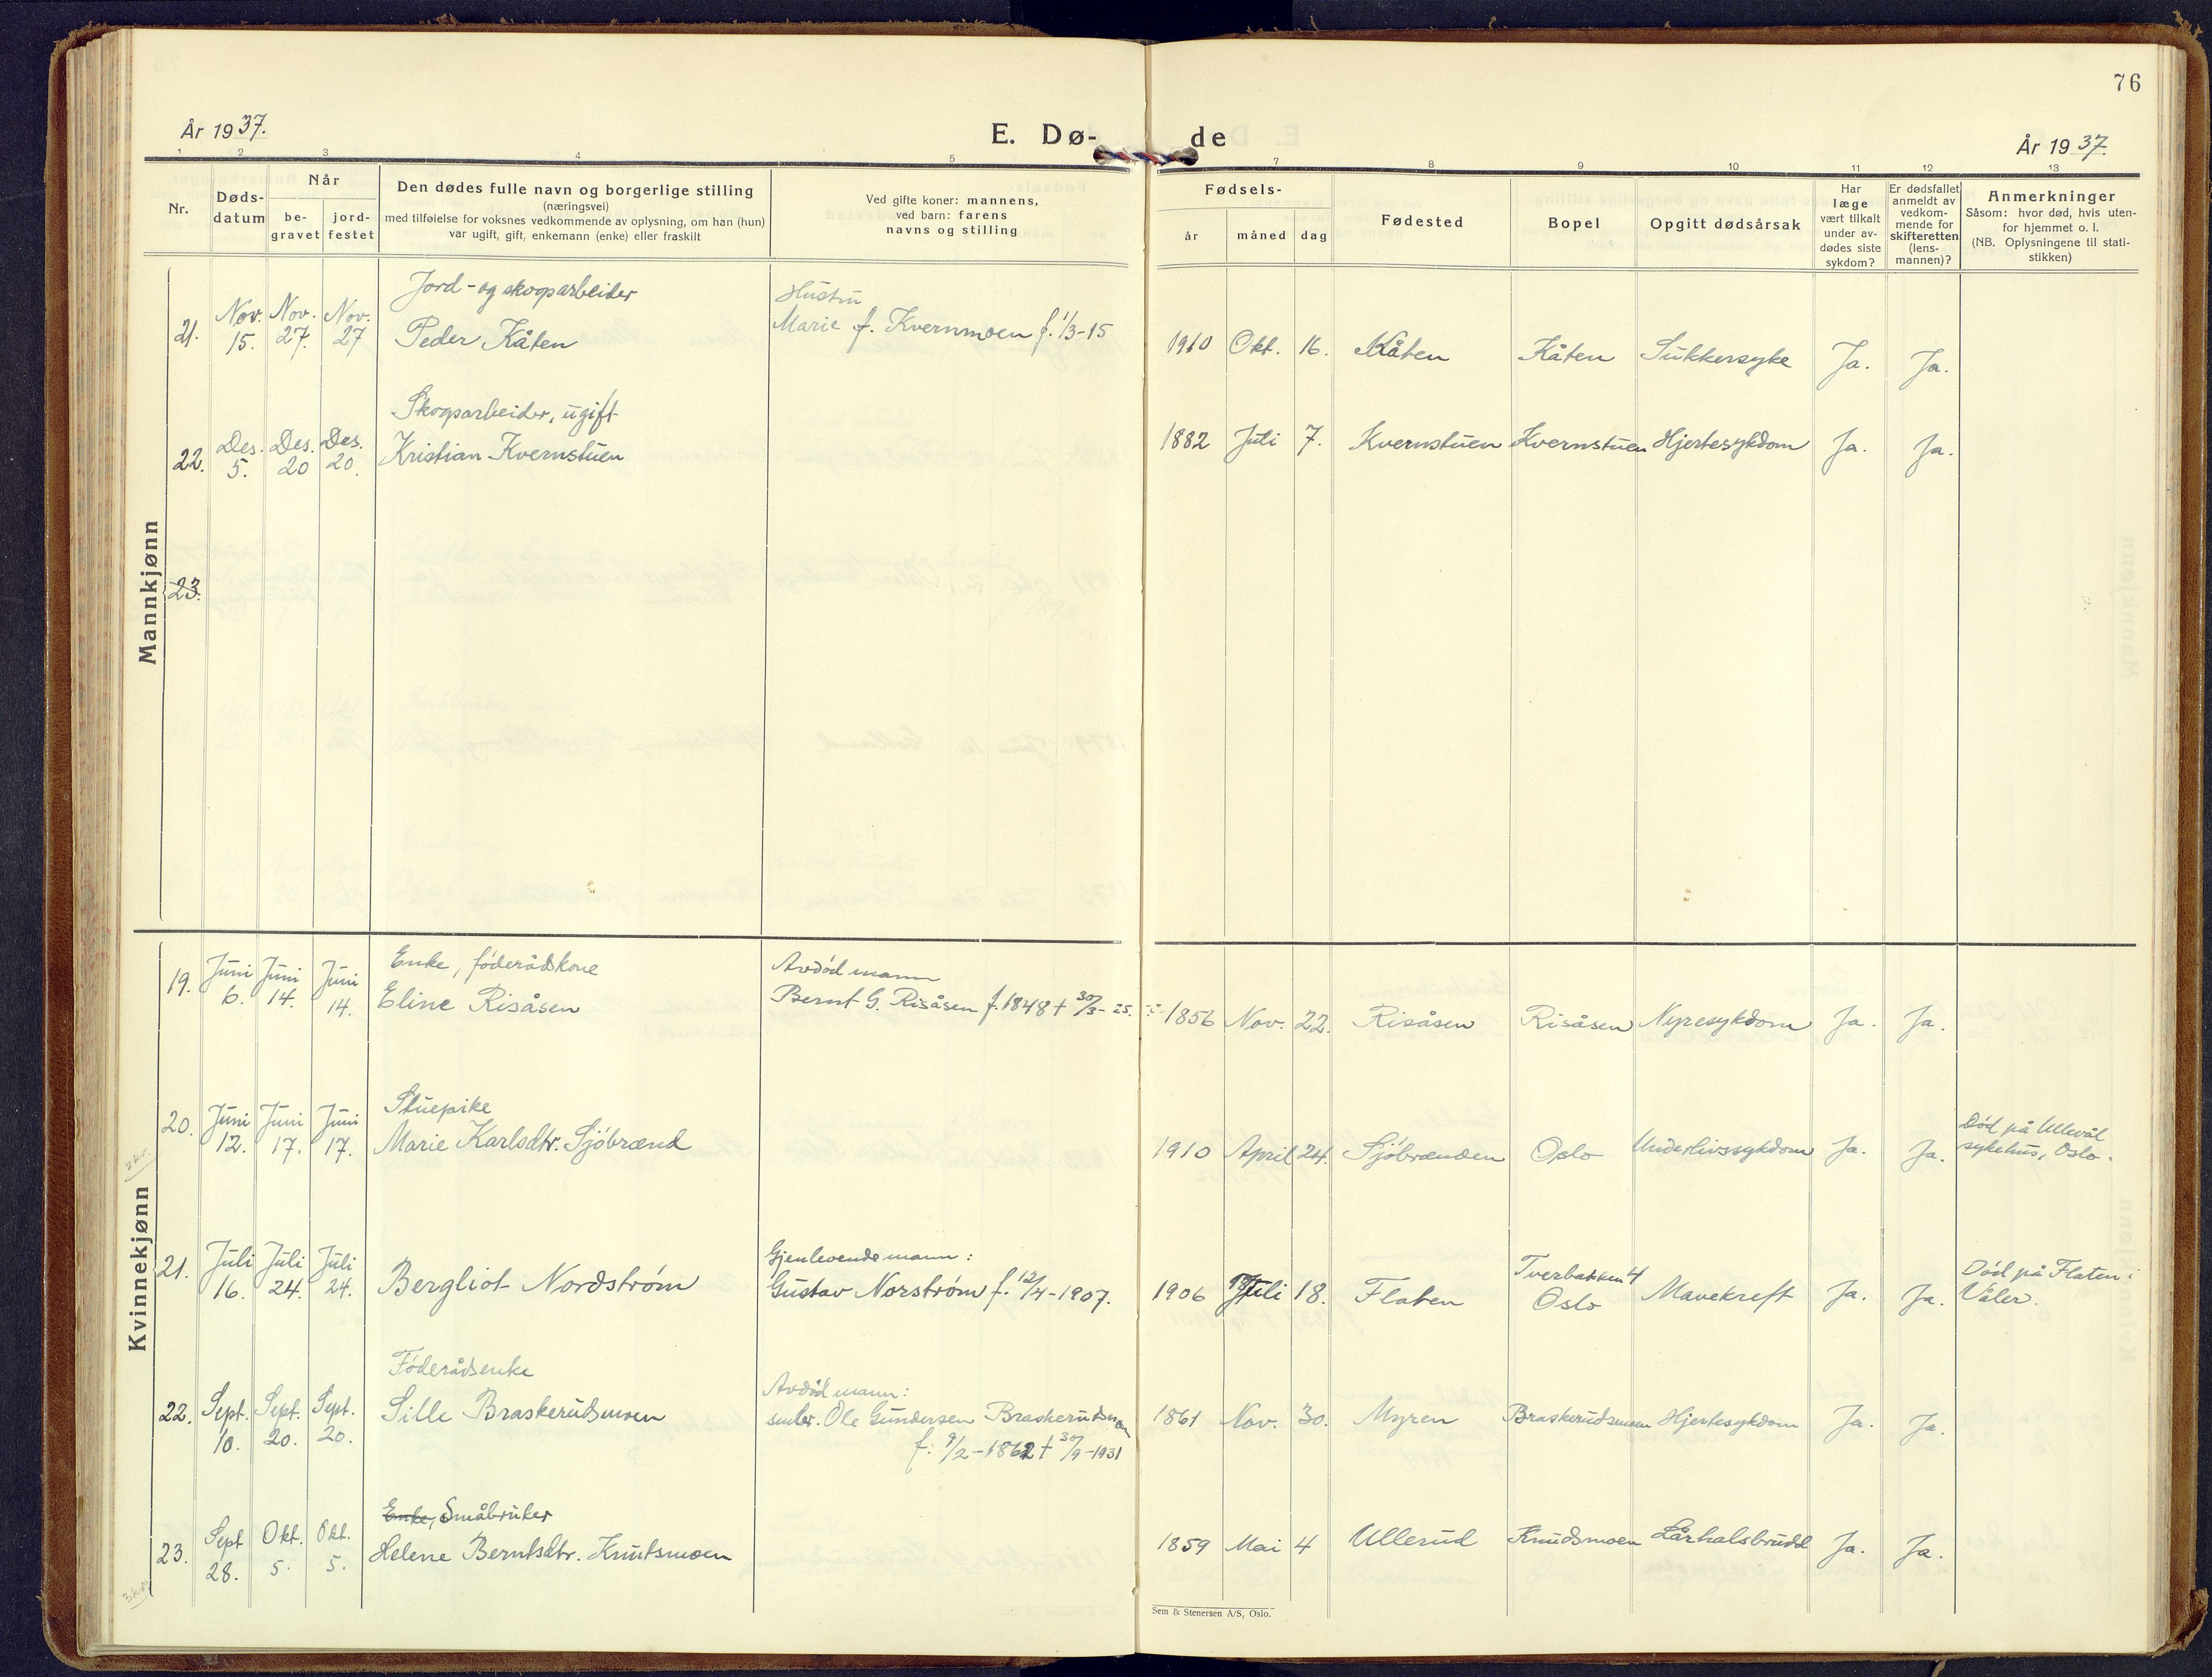 76
År 1937.
E. Dø-
de
År 1937.
1 2 3 4 5 7 8 9 10 11 12 13
Nr.
Døds-
datum
Når
be-
gravet
jord-
festet
Den dødes fulle navn og borgerlige stilling
(næringsvei)
med tilføielse for voksnes vedkommende av oplysning, om han (hun)
var ugift, gift, enkemann (enke) eller fraskilt
Ved gifte koner: mannens,
ved barn: farens
navns og stilling
Fødsels-
år
måned
dag
Fødested
Bopel
Opgitt dødsårsak
Har
læge
vært tilkalt
under av-
dødes siste
sykdom?
Er dødsfallet
anmeldt av
vedkom-
mende for
skifteretten
(lens-
mannen)?
Anmerkninger
Såsom: hvor død, hvis uten-
for hjemmet o. l.
(NB. Oplysningene til stati-
stikken)
Mannkjønn
Jord- og skogsarbeider
Hustru
21. Nov. 15. Nov. 27. Nov. 27 Peder Kåten Marie f. Kvernmoen f. 1/3-15 1910 Okt. 16. Kåten Kåten Sukkersyke Ja. Ja.
Skogsarbeider, ugift
22. Des. 5. Des. 20 Des. 20. Kristian Kvernstuen 1882 Juli 7. Kvernstuen Kvernstuen Hjertesykdom Ja. Ja.
23.
Kvinnekjønn
Enke, føderådskone
Avdød mann
19. Juni 6. Juni 14. Juni 14. Eline Risåsen Bernt G. Risåsen f. 1848 + 30/3-25. 1856 Nov. 22. Risåsen Risåsen Nyresykdom Ja. Ja.
Stuepike
20. Juni 12. Juni 17. Juni 17. Marie Karlsdtr. Sjöbrænd 1910 April 24. Sjöbrænden Oslo Underlivssykdom Ja. Ja. Død på Ullevål
sykehus, Oslo.
2 kr.
Gjenlevende mann:
21. Juli 16. Juli 24. Juli 24. Bergliot Nordstrøm Gustav Norstrøm f. 12/4-1907. 1906 Juli 18. Flaten Tverbakken 4
Oslo Mavekreft Ja. Ja. Død på Flaten i
Våler.
Föderådsenke
Avdöd mann:
22. Sept. 10. Sept. 20. Sept. 20. Sille Braskerudsmoen smbr. Ole Gundersen Braskerudsmoen
f. 9/2-1862 + 30/9-1931 1861 Nov. 30. Myren Braskerudsmoen Hjertesykdom Ja. Ja.
Enke, Småbruker
23. Sept 28. Okt. 5. Okt. 5. Helene Berntsdtr. Knutsmoen 1859 Mai 4 Ullerud Knudsmoen Lårhalsbrudd Ja. Ja.
Sem & Stenersen A/S, Oslo.